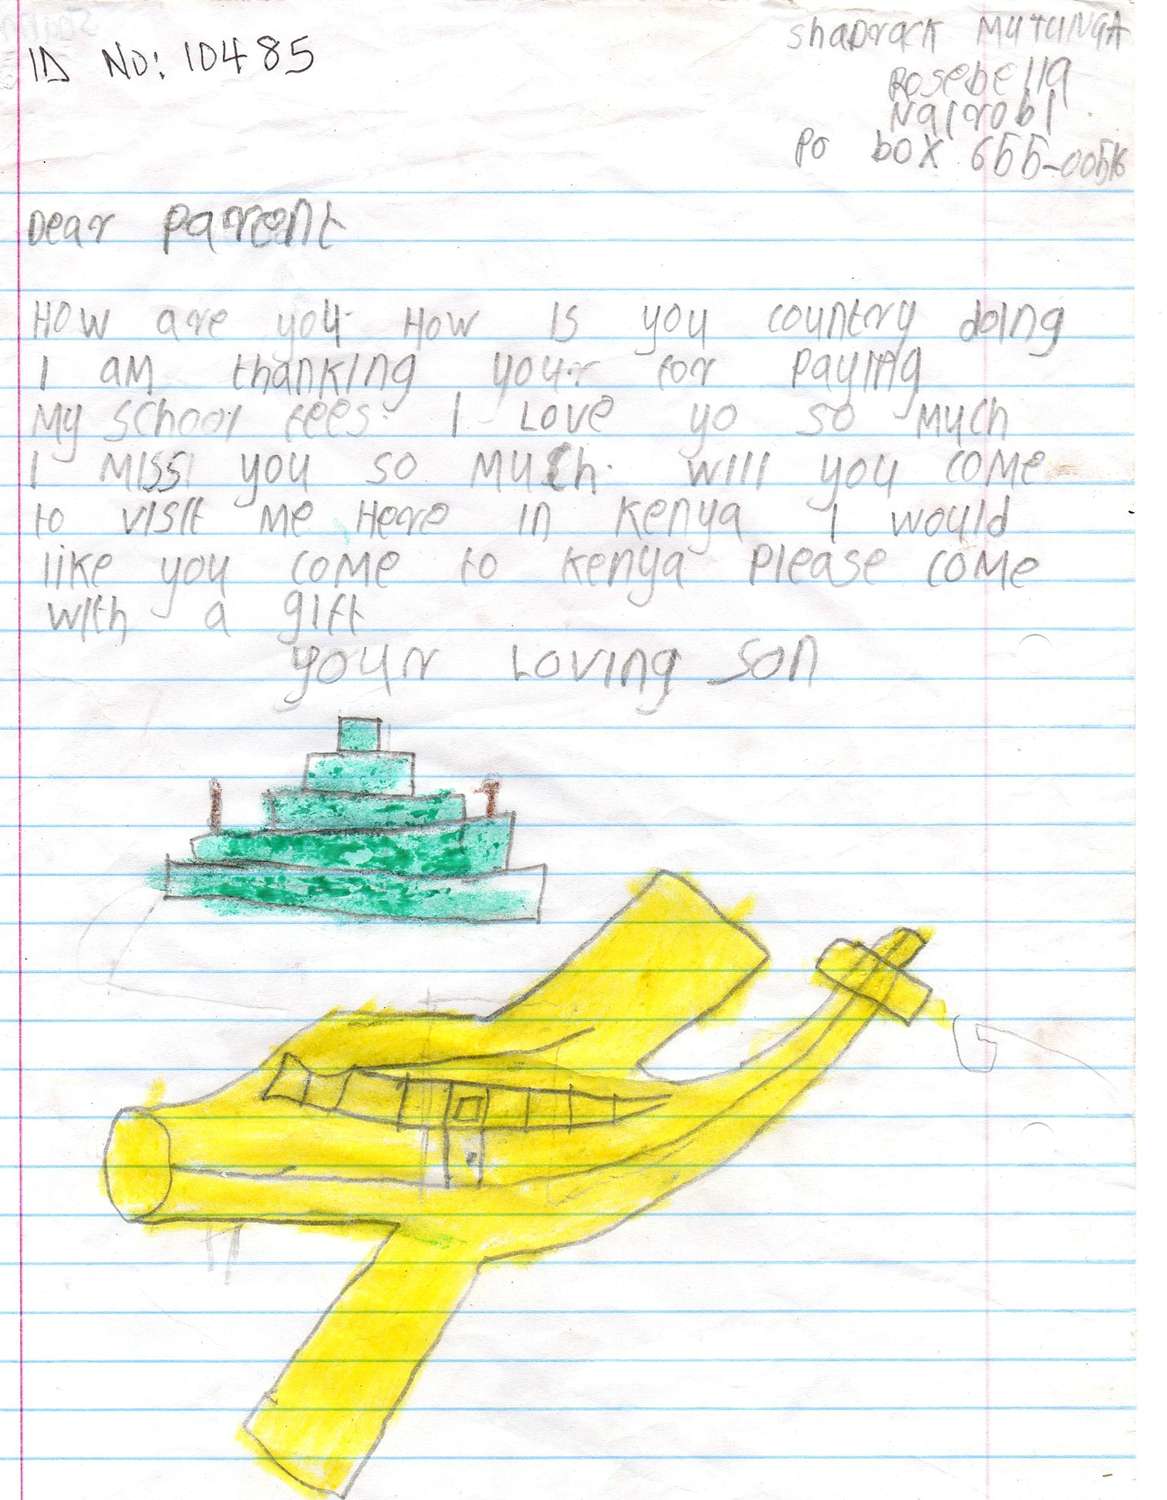 ID No: 10485
Shadrack MUTUNGA
Rosebella
Nairobi
Po box 655-00516
Dear parent
How are you. How is you country doing
I am thanking your for paying
My school fees. I Love yo so much
I miss you so much. will you come
to visit me Here in Kenya I would
like you come to Kenya Please come
with a gift
your Loving son